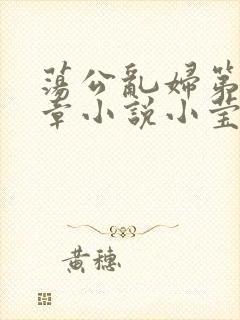 蕩公亂婦第
章小說小莹
黃穗